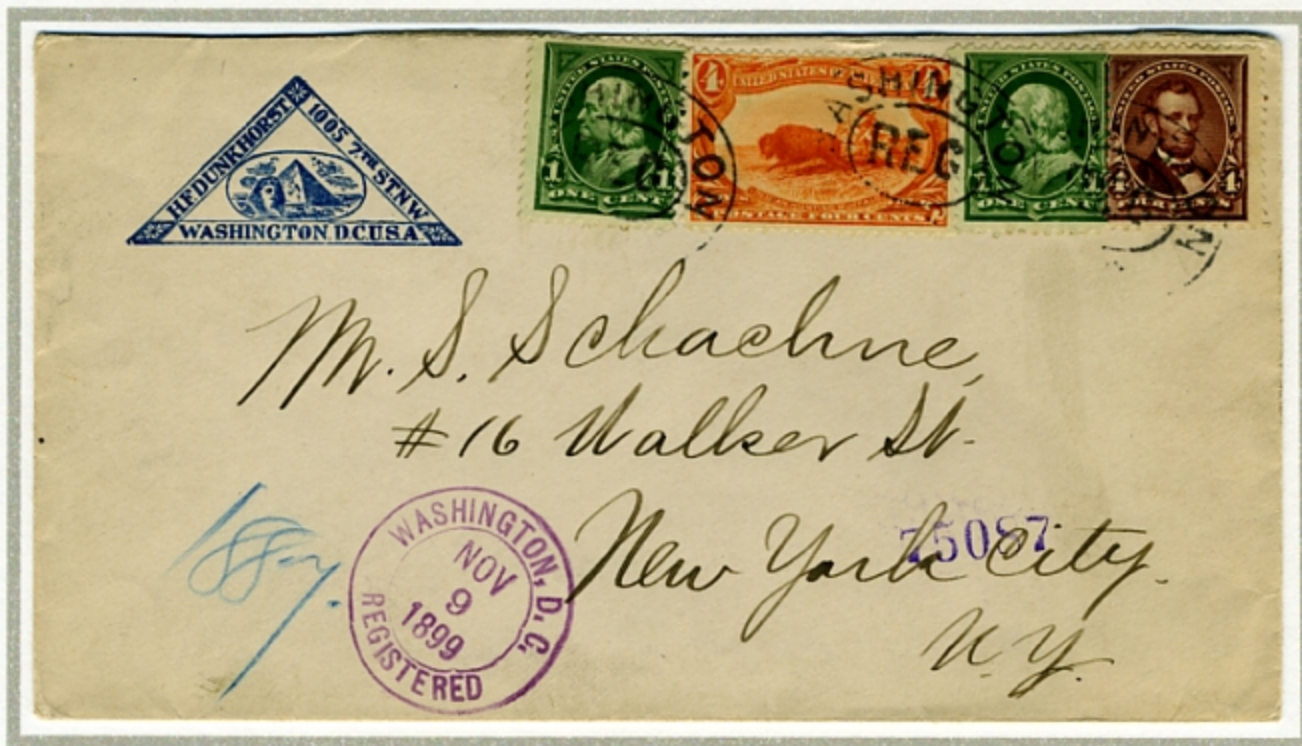 H.F. DUNKHORST
1005 7TH ST NW
WASHINGTON D.C. U.S.A
UNITED STATES POSTAGE
1 1
ONE CENT
4 4
UNITED STATES OF AMERICA
POSTAGE FOUR CENTS
UNITED STATES POSTAGE
1 1
ONE CENT
UNITED STATES POSTAGE
4 4
FOUR CENTS
WASHINGTON
REG
M. S. Schachne,
#16 Walker St.
New York City.
N.Y.
75087
WASHINGTON, D.C.
NOV
9
1899
REGISTERED